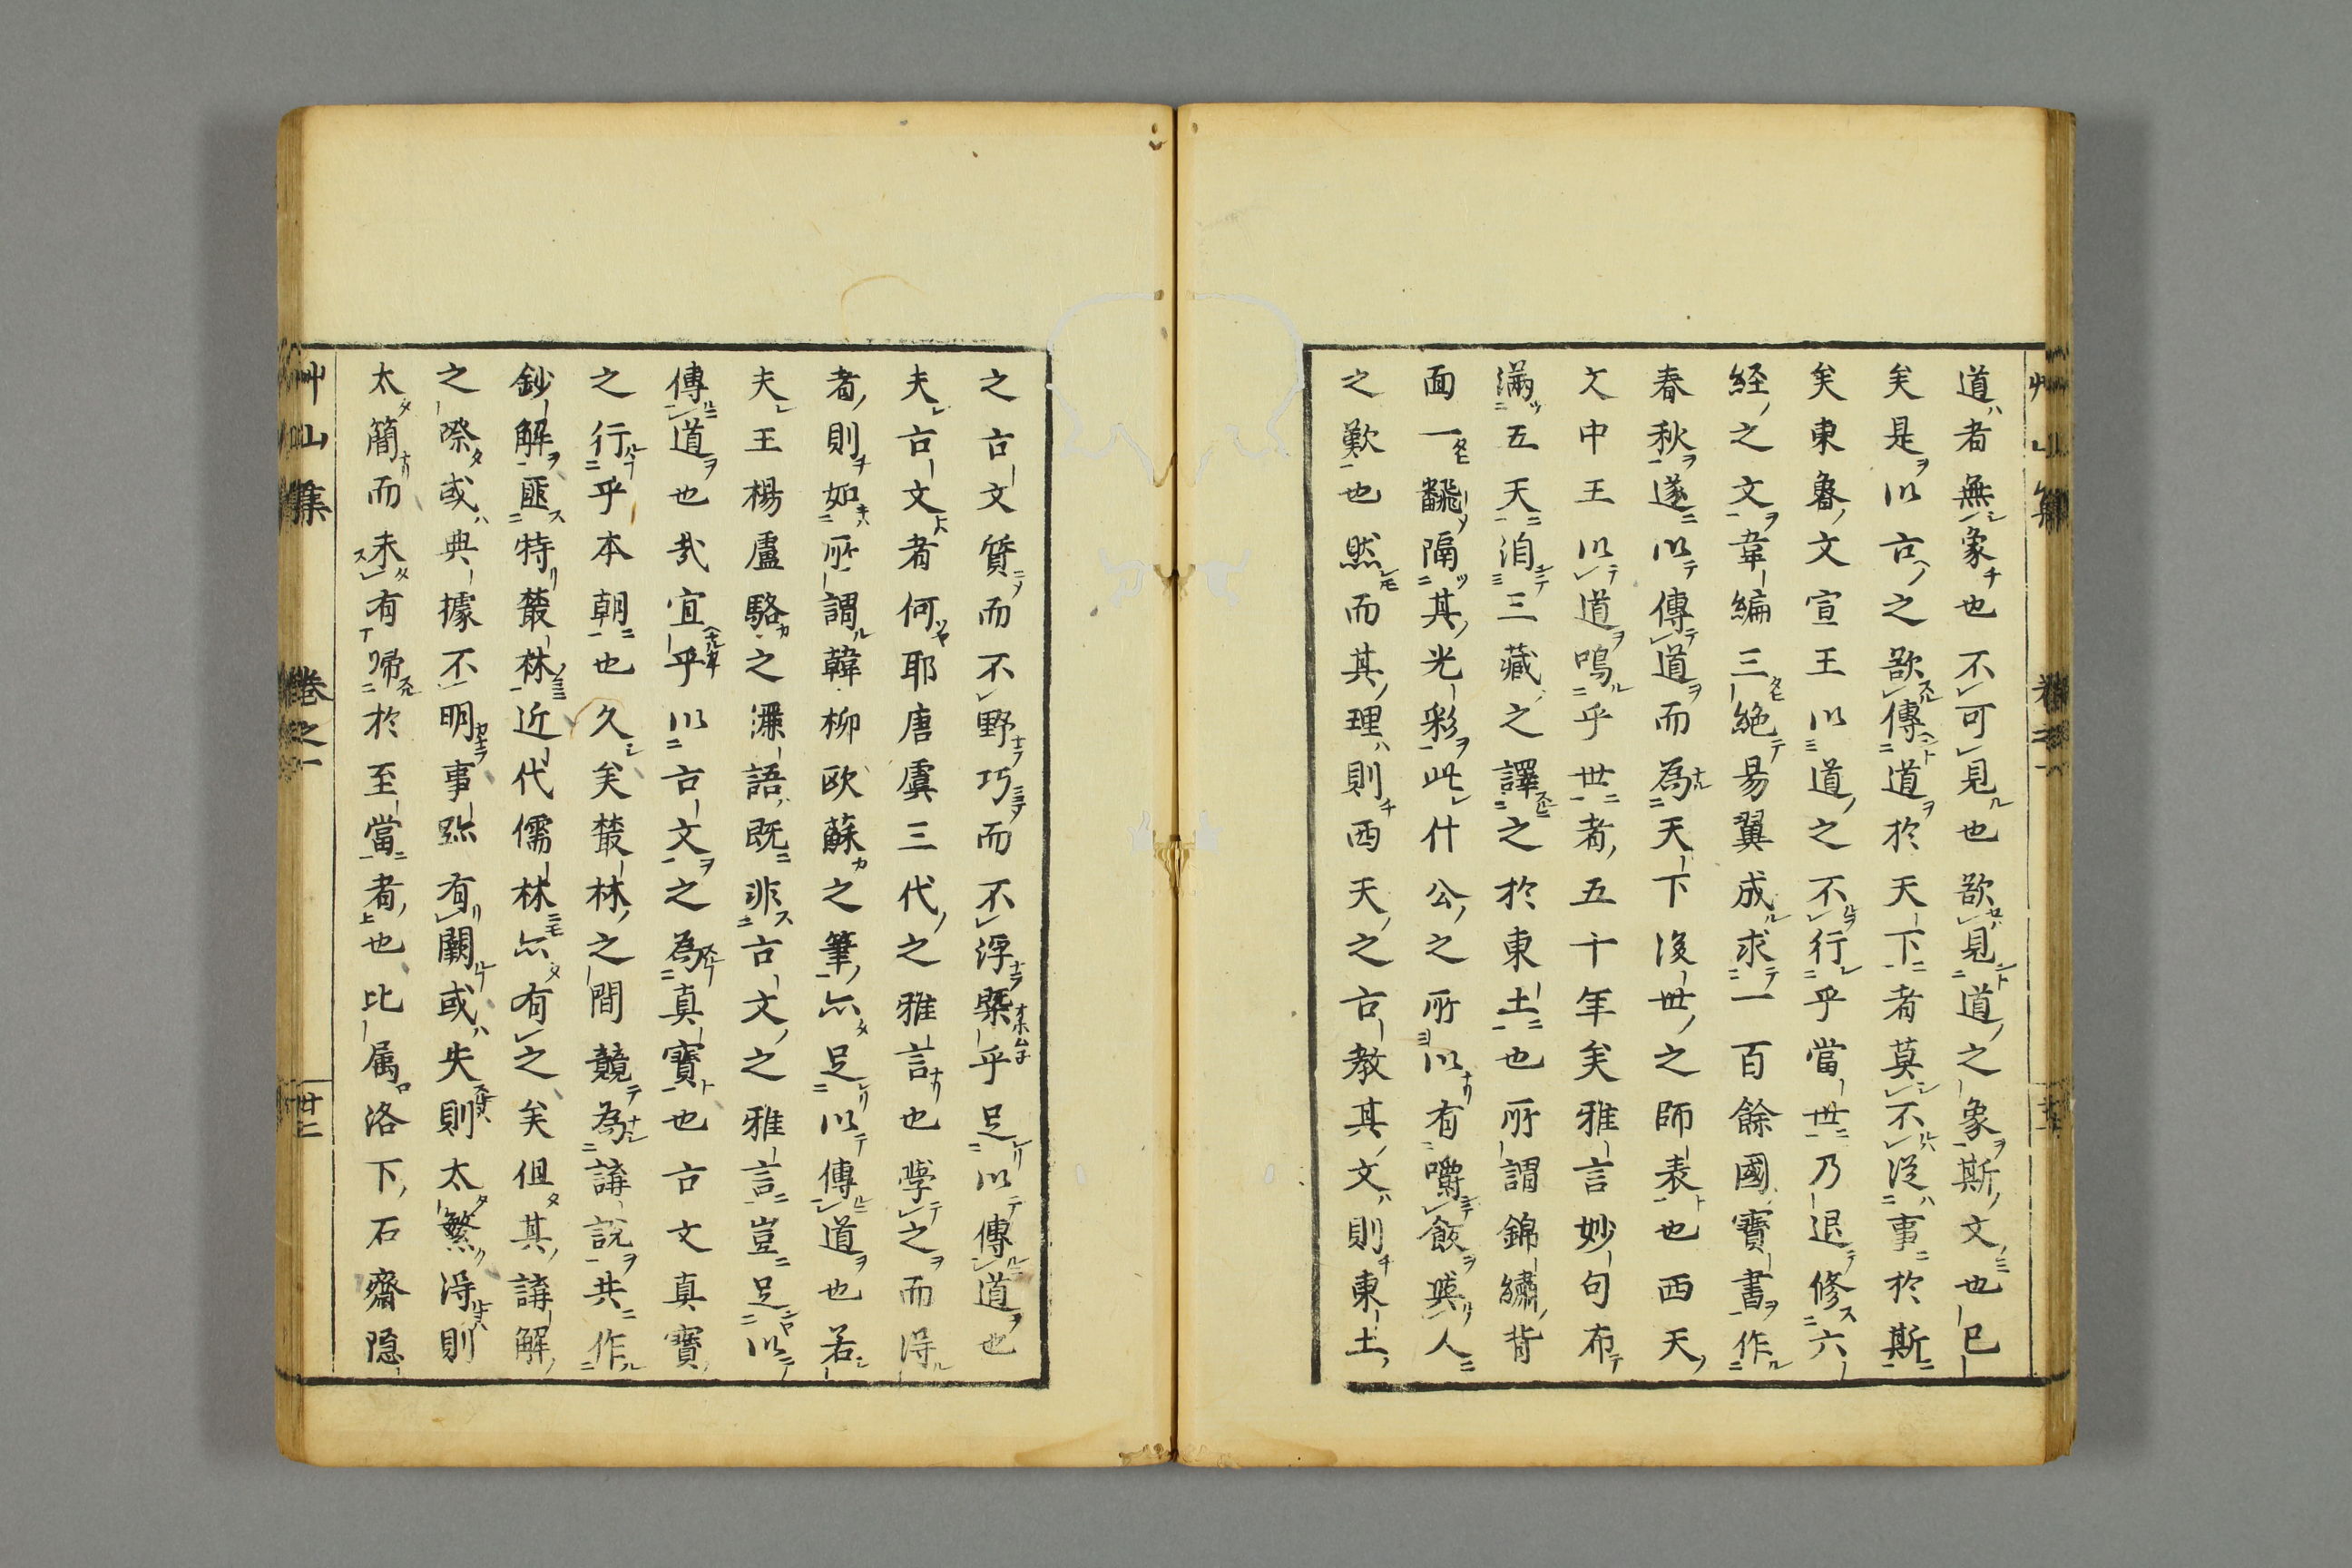 道者無象也不可見也欲見道之象斯文也已
矣是以古之欲傳道於天下者莫不從事於斯
矣東魯文宣王以道之不行乎當世乃退修六
経之文韋編三絶昜翼成求一百餘國寶書作
春秋遂以傳道而為天下後世之師表也西天
文中王以道鳴乎世者五十年矣雅言妙句布
滿五天洎三藏之譯之於東土也所謂錦繡背
面一飜隔其光彩此什公之所以有嚼飯與人
之歎也然而其理則西天之古教其文則東土
之古文質而不野巧而不浮槩乎足以傳道也
夫古文者何耶唐虞三代之雅言也學之而得
者則如所謂韓柳歐蘇之筆亦足以傳道也若
夫王楊盧駱之 語既非古文之雅言豈足以
傳道也哉宜乎以古文之為真寶也古文真寶
之行乎本朝也久矣叢林之間競為講說共作
鈔解匪特叢林近代儒林亦有之矣但其講解
之際或典據不明事跡有闕或失則太繁得則
太簡而未有歸於至當者也比属洛下石齋隠
艸山集 卷之一 廿二